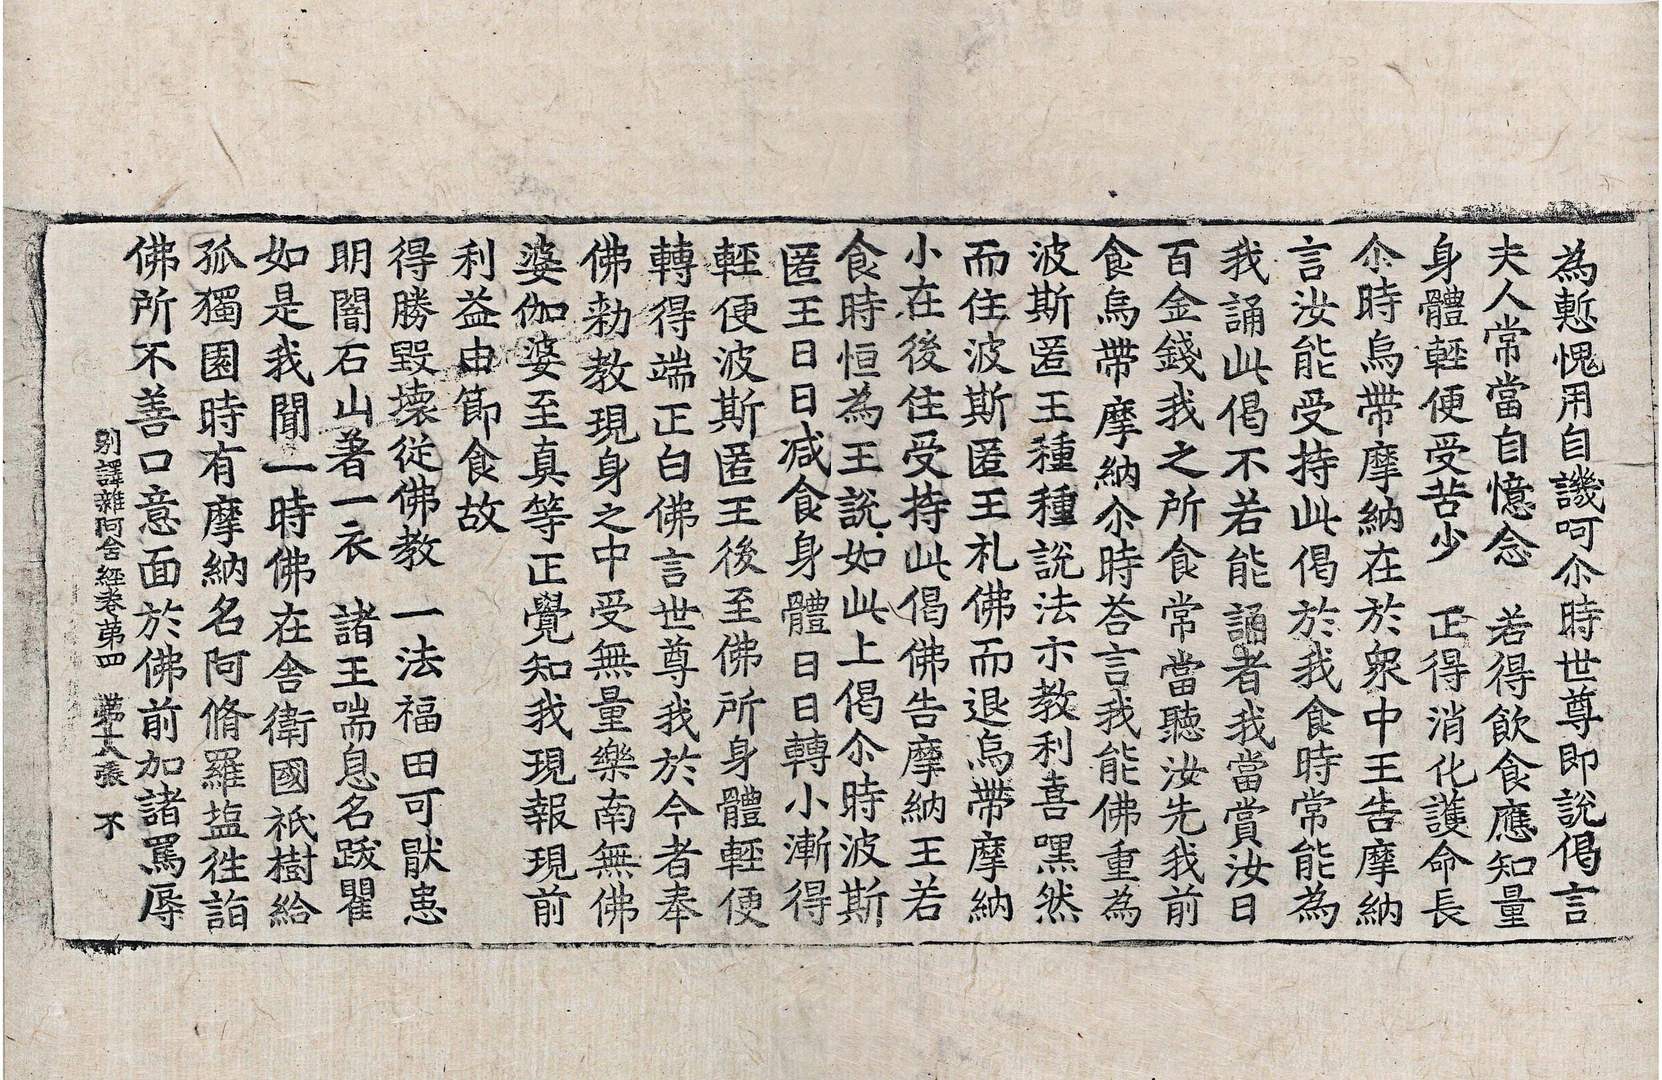 為慙愧用自譏呵尒時世尊即說偈言
夫人常當自憶念　若得飲食應知量
身體輕便受苦少　正得消化護命長
尒時烏帶摩納在於衆中王告摩納
言汝能受持此偈於我食時常能為
我誦此偈不若能誦者我當賞汝日
百金錢我之所食常當聽汝先我前
食烏帶摩納尒時荅言我能佛重為
波斯匿王種種說法示教利喜嘿然
而住波斯匿王礼佛而退烏帶摩納
小在後住受持此偈佛告摩納王若
食時恒為王說如此上偈尒時波斯
匿王日日減食身體日日轉小漸得
輕便波斯匿王後至佛所身體輕便
轉得端正白佛言世尊我於今者奉
佛勑教現身之中受無量樂南無佛
婆伽婆至真等正覺知我現報現前
利益由節食故
得勝毀壞從佛教　一法福田可猒患
明闇石山著一衣　諸王喘息名跋瞿
如是我聞一時佛在舍衛國祇樹給
孤獨園時有摩納名阿脩羅塩徃詣
佛所不善口意面於佛前加諸罵辱
別譯雜阿含經卷第四　第十八張　不